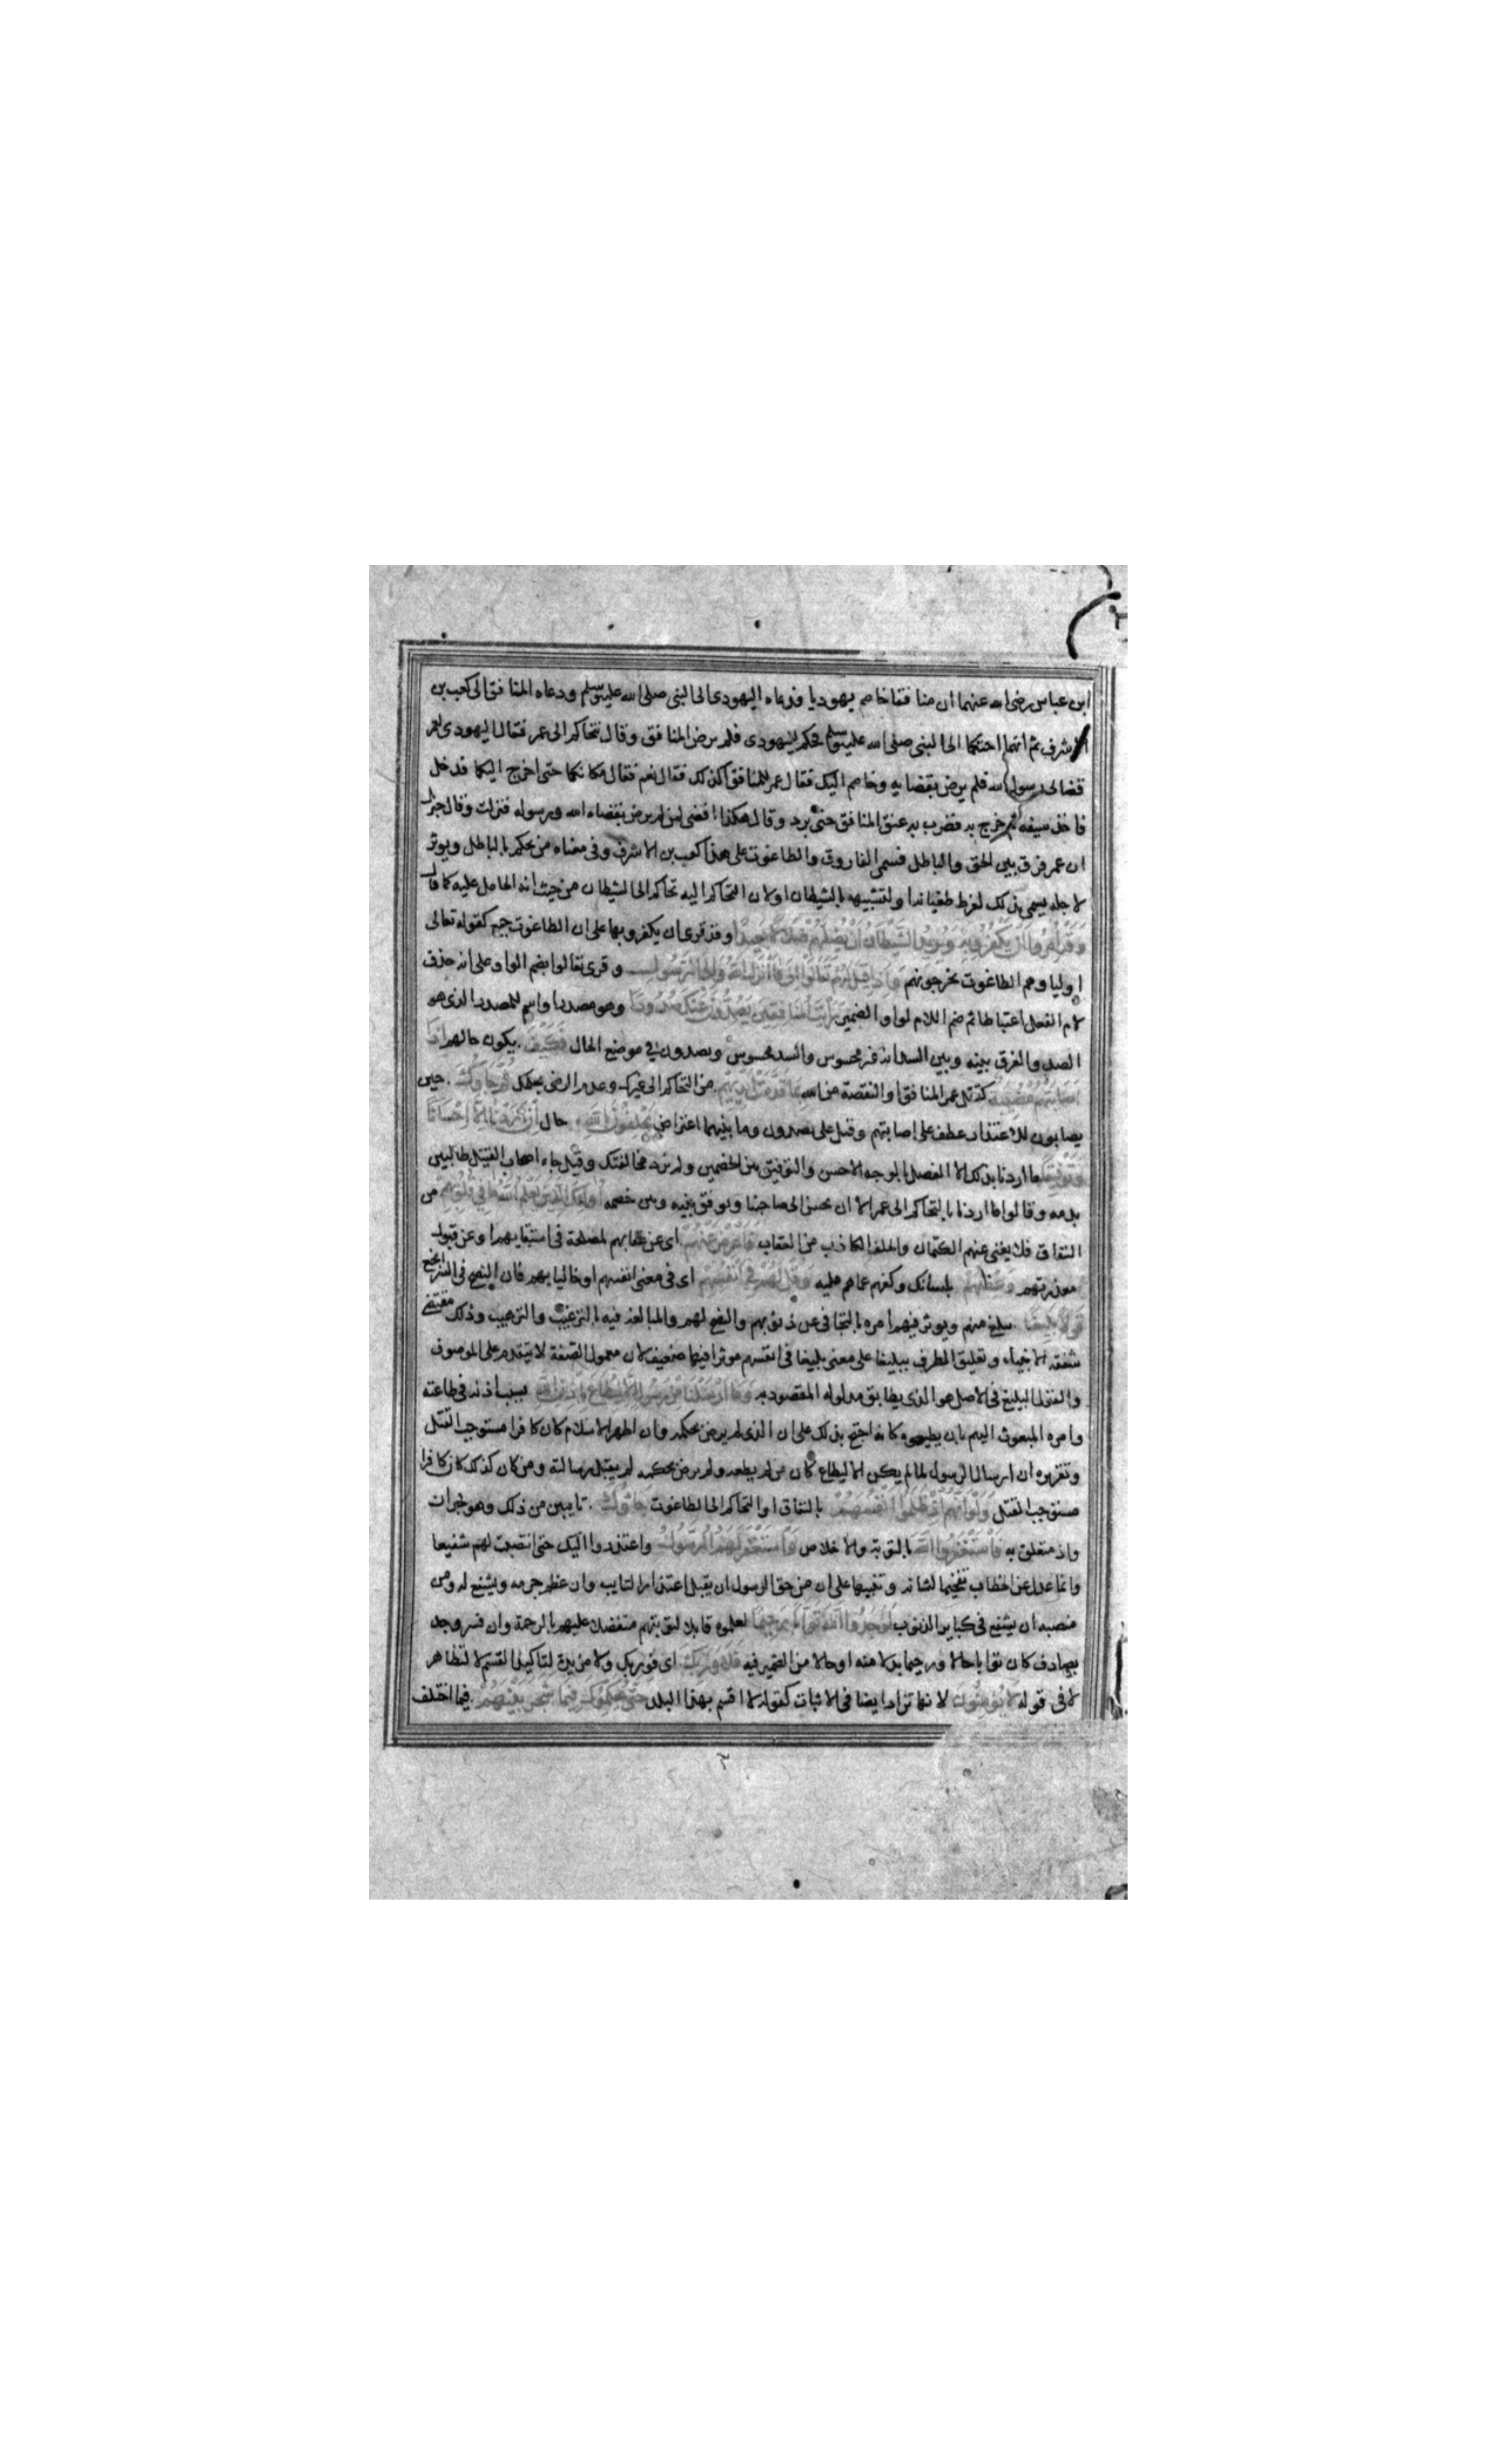 ابن عباس رضى الله عنهما ان منافقا خاصم يهوديا فدعاه اليهودى الى النبى صلى الله عليه وسلم ودعاه المنافق الى كعب بن
الاشرف ثم انهما احتكما الى النبى صلى الله عليه وسلم فحكم لليهودى فلم يرض المنافق وقال نتحاكم الى عمر فقال اليهودى لعمر
قضا لى رسول الله فلم يرض بقضايه وخاصم اليك فقال عمر للمنافق اكذلك فقال نعم فقال مكانكما حتى اخرج اليكما فدخل
فاخذ سيفه ثم خرج به فضرب به عنق المنافق حتى برد وقال هكذا اقضى لمن لم يرض بقضاء الله ورسوله فنزلت وقال جبريل
ان عمر فرق بين الحق والباطل فسمى الفاروق والطاغوت على هذا كعب بن الاشرف وفى معناه من يحكم بالباطل ويوثر
لاجله سمى بذلك لفرط طغيانه او لتشبيهه بالشيطان او لان التحاكم اليه تحاكم الى الشيطان من حيث انه الحامل عليه كما قال
وَقَدْ أُمِرُوا أَنْ يَكْفُرُوا بِهِ وَيُرِيدُ الشَّيْطَانُ أَنْ يُضِلَّهُمْ ضَلَالًا بَعِيدًا وقد قرى ان يكفروا بها على ان الطاغوت جمع كقوله تعالى
اولياوهم الطاغوت يخرجونهم وَإِذَا قِيلَ لَهُمْ تَعَالَوْا إِلَى مَا أَنْزَلَ اللَّهُ وَإِلَى الرَّسُولِ وقرى تعالوا بضم الواو على انه حذف
لام الفعل اعتباطا ثم ضم اللام لواو الضمير رَأَيْتَ الْمُنَافِقِينَ يَصُدُّونَ عَنْكَ صُدُودًا وهو مصدر او اسم للمصدر الذى هو
الصد والفرق بينه وبين السد انه غير محسوس والسد محسوس ويصدون فى موضع الحال فَكَيْفَ يكون حالهم إِذَا
أَصَابَتْهُمْ مُصِيبَةٌ كقتل عمر المنافق او النقمة من الله بِمَا قَدَّمَتْ أَيْدِيهِمْ من التحاكم الى غيرك وعدم الرضى بحكمك ثُمَّ جَاؤُكَ حين
يصابون للاعتذار عطف على اصابتهم وقيل على يصدون وما بينهما اعتراض يَحْلِفُونَ بِاللَّهِ حال إِنْ أَرَدْنَا إِلَّا إِحْسَانًا
وَتَوْفِيقًا ما اردنا بذلك الا الفصل بالوجه الاحسن والتوفيق بين الخصمين ولم نرد مخالفتك وقيل جاء اصحاب القتيل طالبين
بدمه وقالوا ما اردنا بالتحاكم الى عمر الا ان يحسن الى صاحبنا ويوفق بينه وبين خصمه أُولَئِكَ الَّذِينَ يَعْلَمُ اللَّهُ مَا فِي قُلُوبِهِمْ من
النفاق فلا يغنى عنهم الكتمان والحلف الكاذب من العقاب فَأَعْرِضْ عَنْهُمْ اى عن عقابهم لمصلحة فى استبقايهم او عن قبول
معذرتهم وَعِظْهُمْ بلسانك وكفهم عما هم عليه وَقُلْ لَهُمْ فِي أَنْفُسِهِمْ اى فى معنى انفسهم او خاليا بهم فان النصح فى السر انجع
قَوْلًا بَلِيغًا يبلغ منهم ويوثر فيهم امره بالتجافى عن ذنوبهم والنصح لهم والمبالغة فيه بالترغيب والترهيب وذلك مقتضى
شفقة الانبياء وتعليق الظرف ببليغا على معنى بليغا فى انفسهم موثرا فيها ضعيف لان معمول الصفة لا يتقدم على الموصوف
والقول البليغ فى الاصل هو الذى يطابق مدلوله المقصود به وَمَا أَرْسَلْنَا مِنْ رَسُولٍ إِلَّا لِيُطَاعَ بِإِذْنِ اللَّهِ بسبب اذنه فى طاعته
وامره المبعوث اليهم بان يطيعوه كانه احتج بذلك على ان الذى لم يرض بحكمه وان اظهر الاسلام كان كافرا مستوجب القتل
وتقريره ان ارسال الرسول لما لم يكن الا ليطاع كان من لم يطعه ولم يرض بحكمه لم يقبل رسالته ومن كان كذلك كان كافرا
مستوجب القتل وَلَوْ أَنَّهُمْ إِذْ ظَلَمُوا أَنْفُسَهُمْ بالنفاق او التحاكم الى الطاغوت جَاؤُكَ تايبين من ذلك وهو خبر ان
واذ متعلق به فَاسْتَغْفَرُوا اللَّهَ بالتوبة والاخلاص وَاسْتَغْفَرَ لَهُمُ الرَّسُولُ واعتذروا اليك حتى انتصبت لهم شفيعا
وانما عدل عن الخطاب تفخيما لشانه وتنبيها على ان من حق الرسول ان يقبل اعتذار التايب وان عظم جرمه ويشفع له ومن
منصبه ان يشفع فى كباير الذنوب لَوَجَدُوا اللَّهَ تَوَّابًا رَحِيمًا لعلموه قابلا لتوبتهم متفضلا عليهم بالرحمة وان فسر وجد
بصادف كان توابا حالا ورحيما بدلا منه او حالا من الضمير فيه فَلَا وَرَبِّكَ اى فوربك ولا مزيدة لتاكيد القسم لا لتظاهر
لا فى قوله لَا يُؤْمِنُونَ لانها تزاد ايضا فى الاثبات كقوله لا اقسم بهذا البلد حَتَّى يُحَكِّمُوكَ فِيمَا شَجَرَ بَيْنَهُمْ فيما اختلف